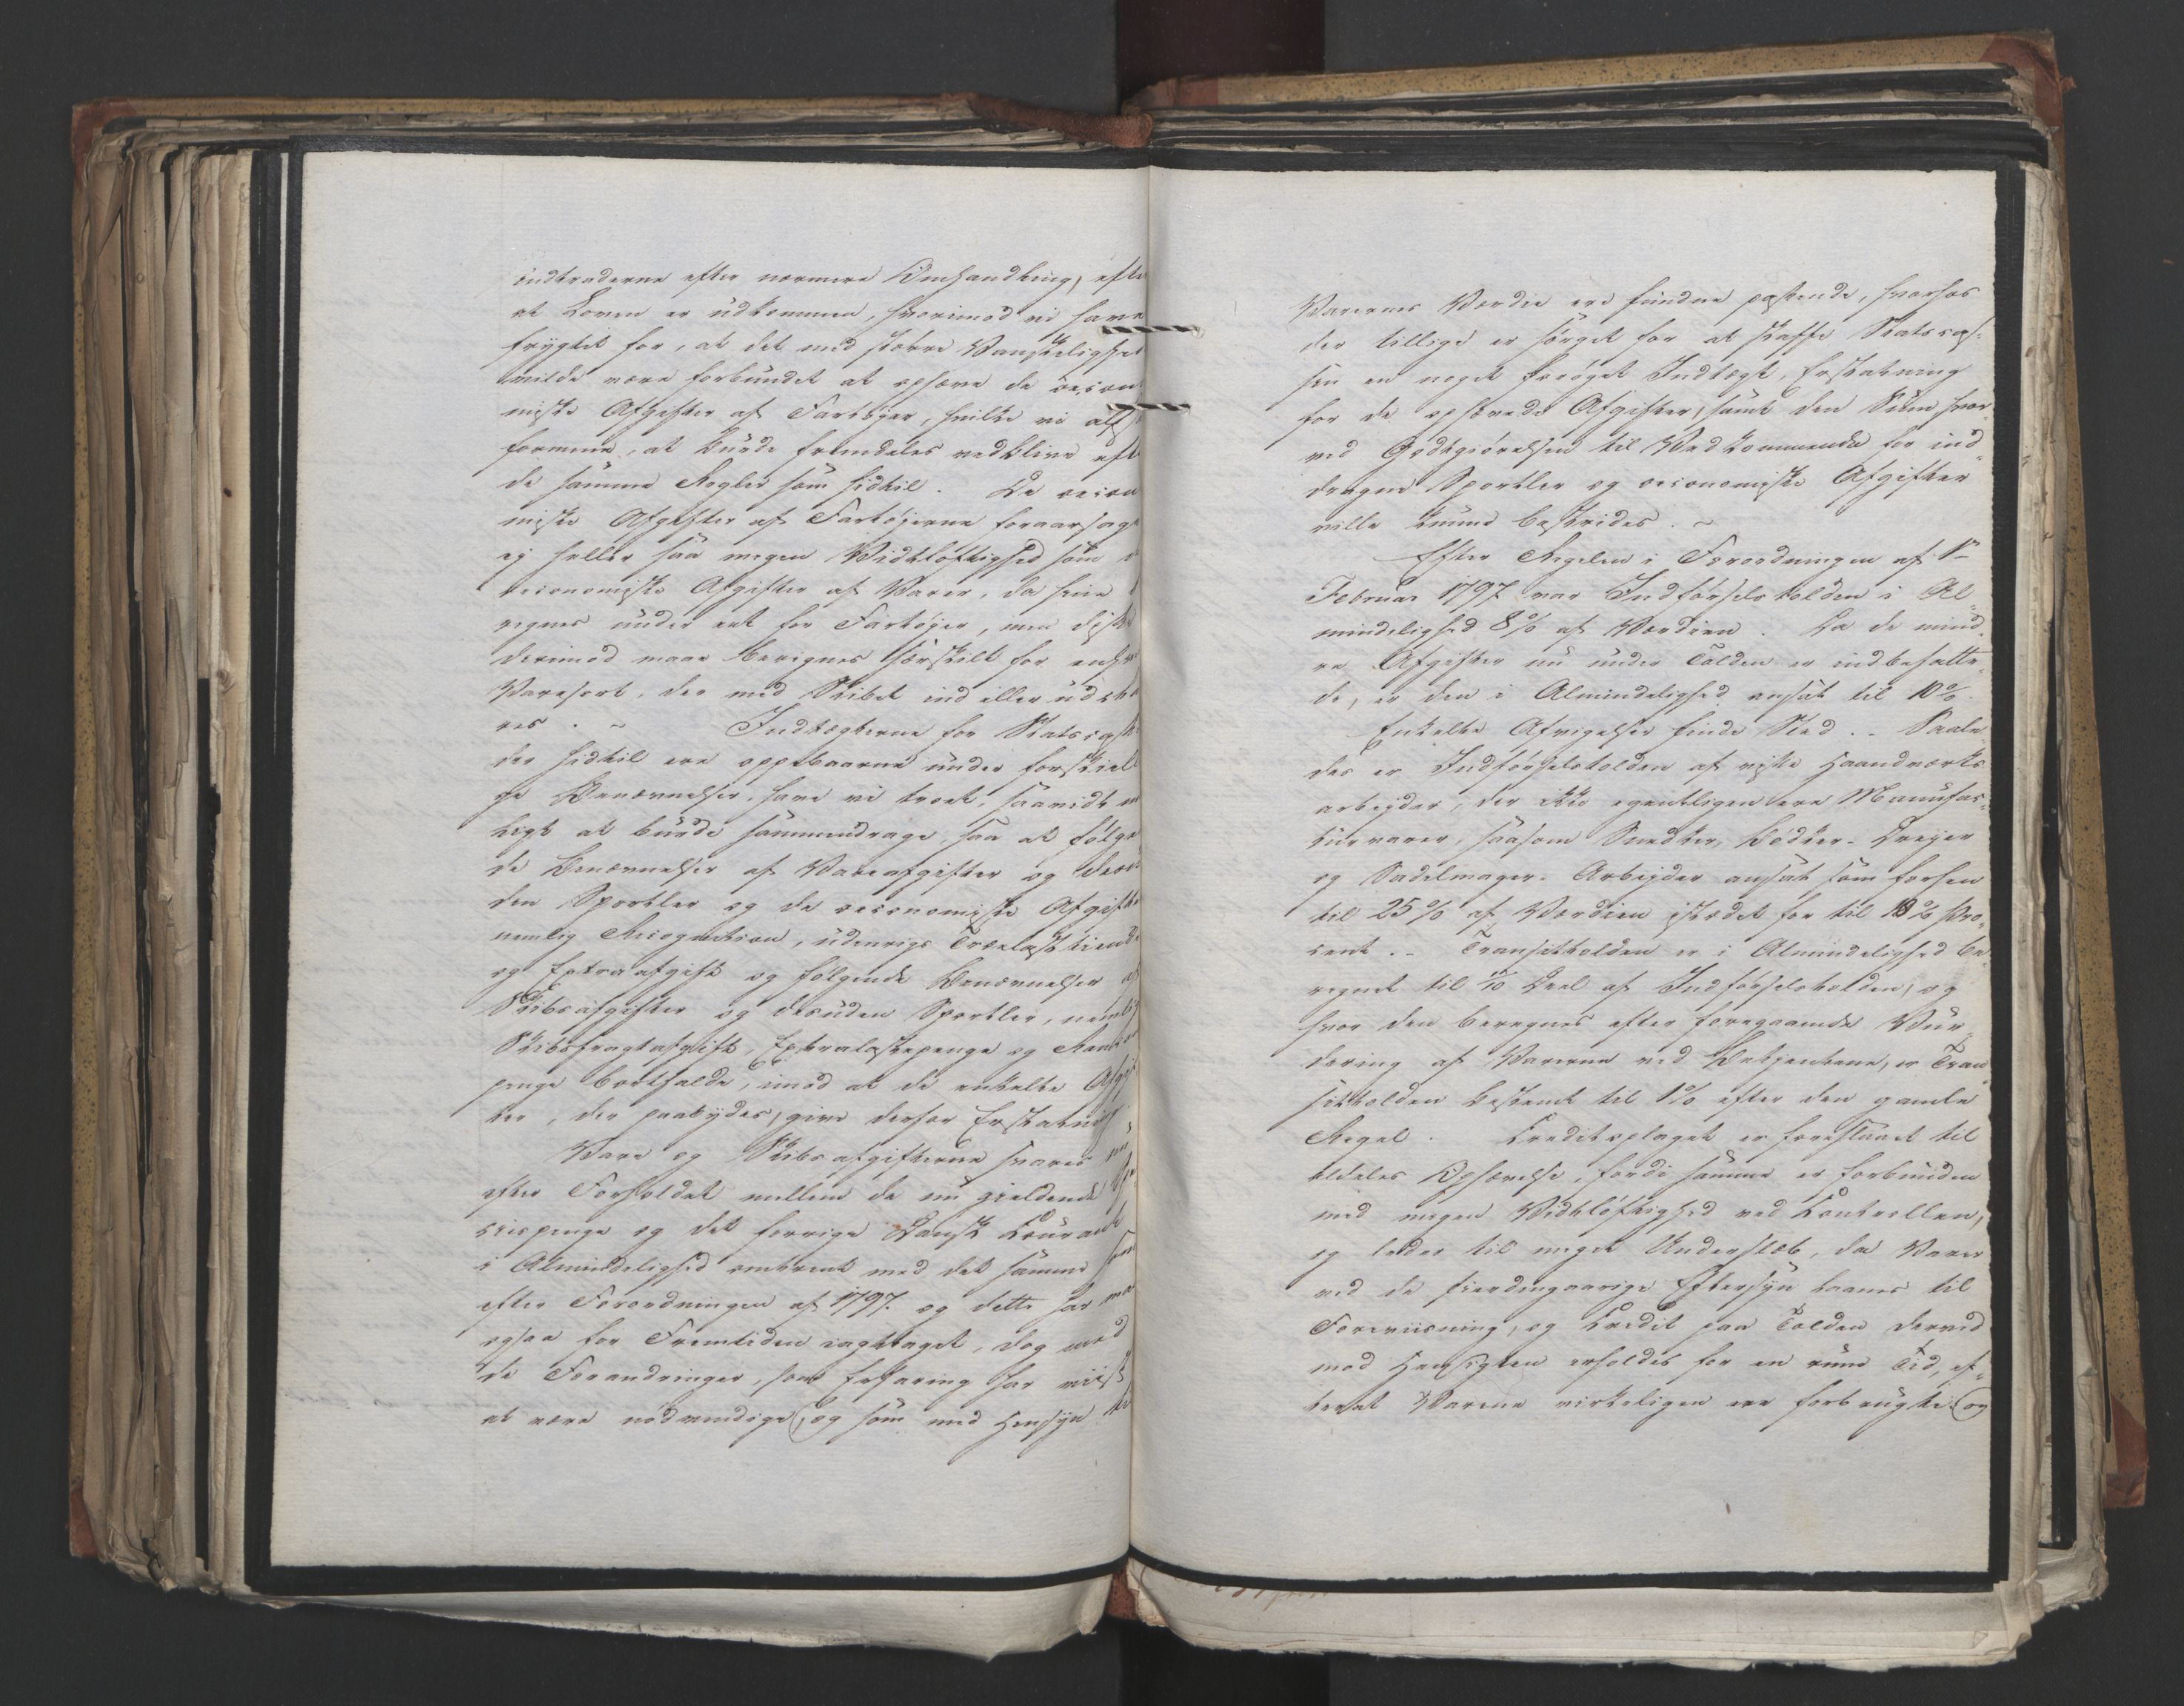 indtraderne efter nærmere Omhandling, efte
at Loven er udkommen, hvorimod vi have
frygtet for, at det med større Vanskelighed
vilde være forbundet at ophæve de oecon
miske Afgifter af Fartøjer, hvilke vi alts
formene, at burde fremdeles vedblive eft
de samme Regler som hidtil. De oecon
miske Afgifter af Fartøjerne foraarsag
ej heller saa megen Vidtløftighed som d
oeconomiske Afgifter af Varer, da hine
regnes under eet for Fartøjer, men diss
derimod maae beregnes særskilt for enhv
Varesort, der med Skibet ind eller udfø
res. ~ Indtægterne for Statscass
der hidtil ere oppebaarne under forskiell
ge Benævnelser, have vi troet, saavidt m
ligt at burde sammendrage, saa at følge
de Benævnelser af Vareafgifter og desu
den Sportler og de oeconomiske Afgifte
nemlig Recognition, udenrigs Trælasttiende
og Extraafgift og følgende Benævnelser af
Skibsafgifter og desuden Sportler, nemlig
Skibsfragtafgift, Extralastepenge og
penge bortfalde, imod at de enkelte Afgif
ter, der paabydes, give derfor Erstatning
Vare og Skibsafgifterne svares
efter Forholdet mellem de nu gieldende Spe
ciespenge og det forrige Dansk Courant
i Almindelighed omtrent med det samme som
efter Forordningen af 1797. og dette har ma
ogsaa for Fremtiden iagttaget, dog med
de Forandringer, som Erfaring har viist
at være nødvendige, og som med Hensyn til
Varernes Værdie ere fundne passende, hvorhos
der tillige er sørget for at skaffe Statscas-
sen en noget forøget Indtægt, Erstatning
for de ophævede Afgifter, samt den Sum hvor-
ved Godtgiørelsen til Vedkommende for ind-
dragne Sportler og oeconomiske Afgifter
ville kunne bestrides. ~
Efter Regelen i Forordningen af 1ste
Februar 1797 var Indførselstolden i Al-
mindelighed 8% af Værdien. Da de mind-
re Afgifter nu under Tolden er indbefatte-
de, er den i Almindelighed ansat til 10%.
Enkelte Afvigelser finde Sted. - Saale
des er Indførselstolden af visse Haandværks
arbejder, der ikke egentligen ere Manufac-
turvarer, saasom Snedker, Bødker- Drejer
og Sadelmager- Arbejder ansat som forhen
til 25% af Værdien istædet for til 10% Pro-
cent. - Transittolden er i Almindelighed be-
regnet til 1/10 Deel af Indførselstolden, og
hvor den beregnes efter foregaaende Vur-
dering af Varerne ved Betjentene, er Tran
sittolden bestemt til 1% efter den gamle
Regel. Creditoplaget er foreslaaet til
aldeles Ophævelse, fordi samme er forbunden
med megen Vidtløftighed ved Controllen,
og leder til meget Underslæb, da Varer
ved de fierdingaarige Eftersyn laanes til
Foreviisning, og Credit paa Tolden derved
mod Hensigten erholdes for en rum Tid, ef-
terat Varene virkeligen ere forbrugte og